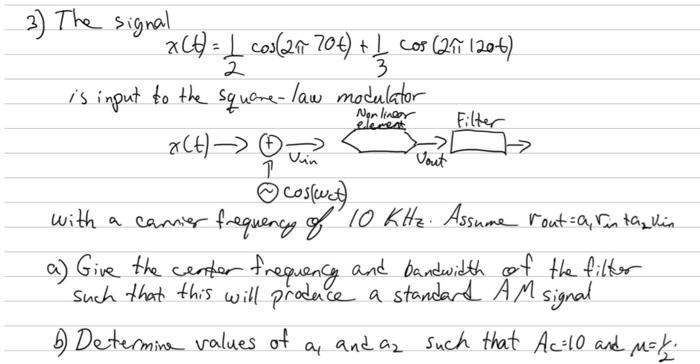 3) The signal
x(t) = 1/2 cos(2π 70t) + 1/3 cos(2π 120t)
is input to the square-law modulator
Nonlinear
element
Filter
x(t) → + → Vin Vout →
~ cos(ωct)
with a carrier frequency of 10 KHz. Assume vout=a₁vin+a₂vin
a) Give the center frequency and bandwidth of the filter
such that this will produce a standard AM signal
b) Determine values of a₁ and a₂ such that Ac=10 and μ=1/2.